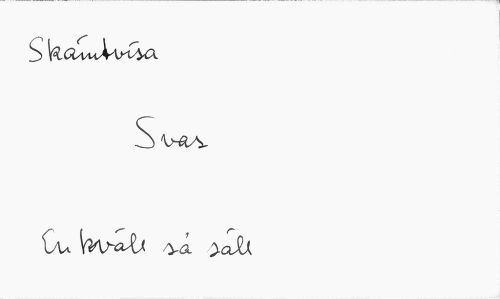 Skämtvisa
Svas
En kväll så säll